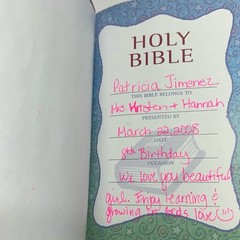 HOLY
BIBLE
Patricia Jimenez
THIS BIBLE BELONGS TO
Ms. Kristen + Hannah
PRESENTED BY
March 22, 2008
DATE
8th Birthday
OCCASION
We love you beautiful
girl. Enjoy learning &
growing in God's love (:)